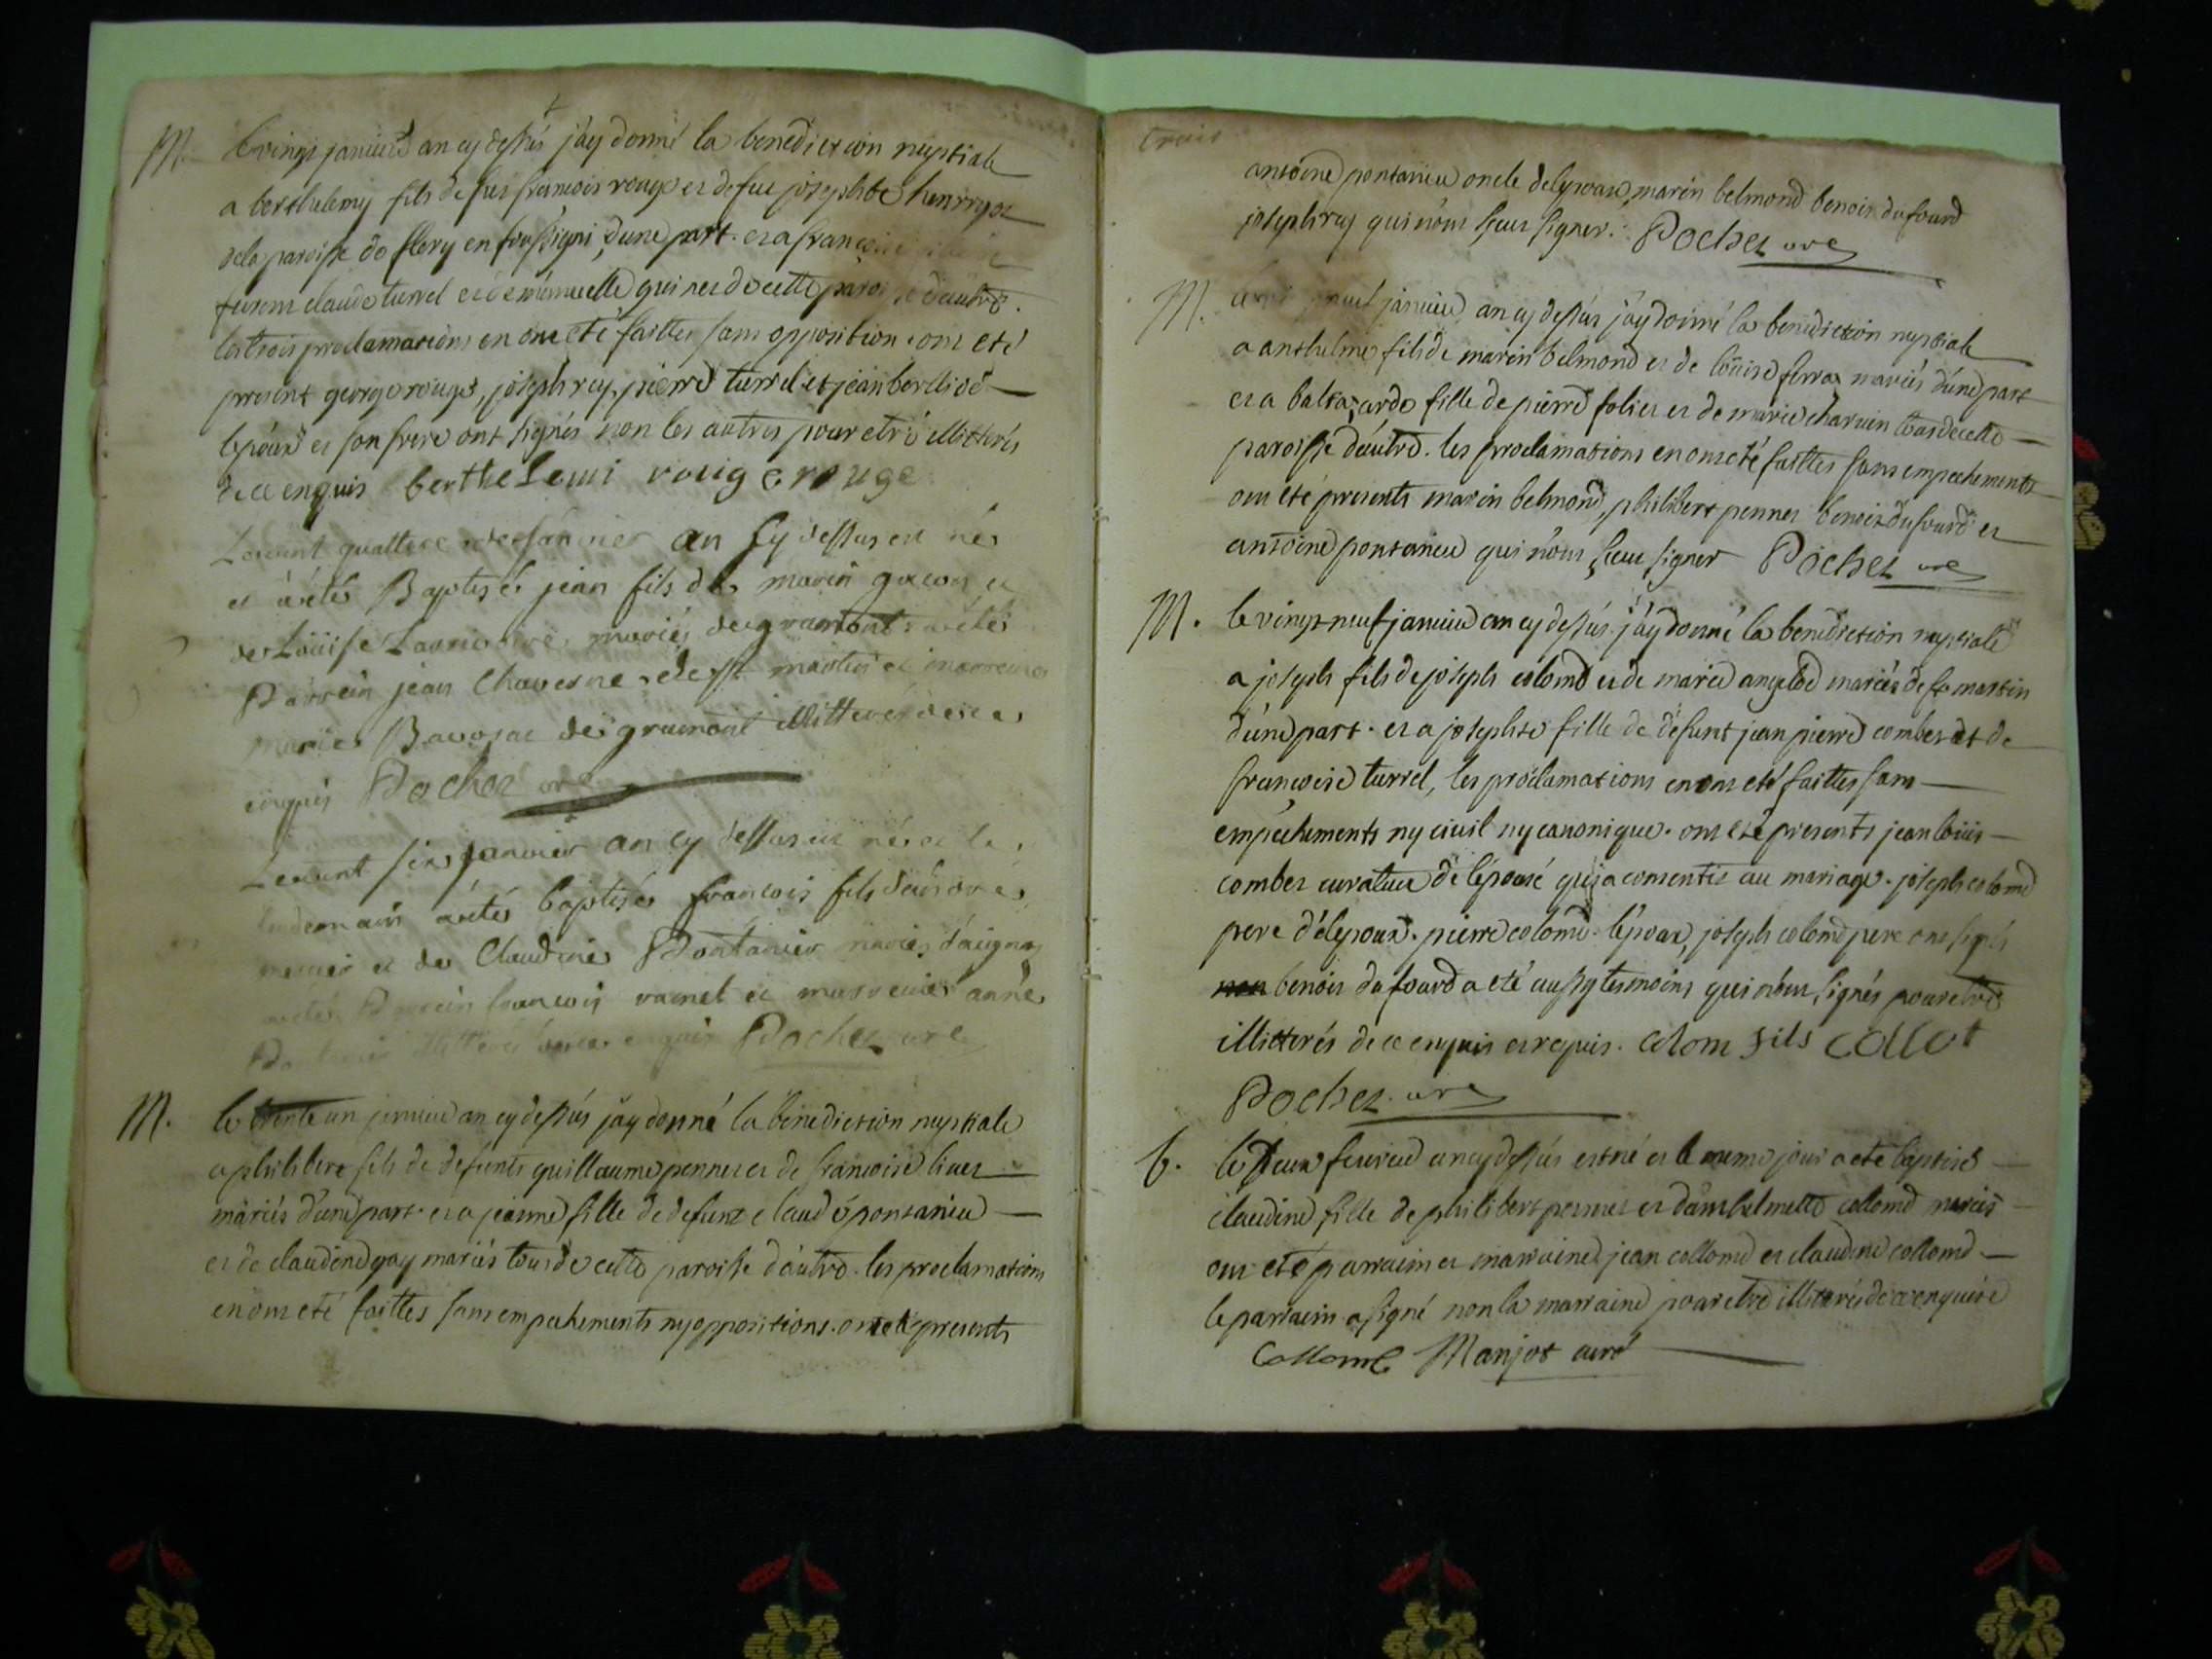 M. le vingt janvier an cy dessus j'ay donné la benediction nuptiale
a berthelemy fils de feu francois rouge et de feue josephte
de la paroisse de flery en foussigni, d'une part. et a francoise
claude turrel et de emanuelle qui ner de cette paroisse d'autre.
les trois proclamations en ont eté faittes sans opposition. ont eté
present george rouge, joseph rey, pierre turrel et jean berliod
l'epoux et son frere ont signés non les autres pour etre illitterés
de ce enquis berthelemi rouge rouge
Le vint quattre janvier an cy dessus est né
et a été Baptisé jean fils de marin et
de Loüise mariés de gramont a été
Parrein jean Chaverne de st martin et marreine
marie de gramont illitterés de ce
enquis Pochet cure
Le vint six janvier an cy dessus est né et le
lendemain a été baptisé francois fils d'
mercier et de Claudine Pontanier mariés
a été Parrein francois et marreine anne
illitterés enquis Pochet cure
M. le trente un janvier an cy dessus j'ay donné la benediction nuptiale
a philibert fils de defunts guillaume pennet et de francoise
mariés d'une part. et a jeanne fille de defunt claude pontanieu
et de claudine gay mariés tous de cette paroisse d'autre. les proclamations
en ont eté faittes sans empechements ny oppositions. ont eté presents
trois
antoine pontanieu oncle de l'epouse, marin belmond benoit dufourd
joseph rey qui n'ont sceu signer. Pochet cure
M. janvier an cy dessus j'ay donné la benediction nuptiale
a anthelme fils de marin belmond et de loüise ferra mariés d'une part
et a baltazarde fille de pierre foliet et de marie charvin tous de cette
paroisse d'autre. les proclamations en ont eté faittes sans empechements
ont eté presents marin belmond, philibert pennet benoit dufourd et
antoine pontanieu qui n'ont sceu signer Pochet cure
M. le vingt neuf janvier an cy dessus j'ay donné la benediction nuptiale
a joseph fils de joseph colomb et de marie mariés de st martin
d'une part. et a josephte fille de defunt jean pierre combet et de
francoise turrel, les proclamations en ont eté faittes sans
empechements ny civil ny canonique. ont eté presents jean loüis
combet curateur de l'epouse qui a consentis au mariage. joseph colomb
pere d'el'epoux. pierre colomb. l'epoux, joseph colomb pere ont signés
non benoit dufourd a eté aussy tesmoins qui n'ont signés pour etre
illitterés de ce enquis et requis. colom fils collot
Pochet cure
b. le deux fevrier an cy dessus est né et le meme jour a eté baptisé
claudine fille de philibert pennet et d'anthelmette collomb mariés
ont eté parrain et marraine jean collomb et claudine collomb
le parrain a signé non la marraine pour etre illiterés de ce enquise
Collomb Manjot curé